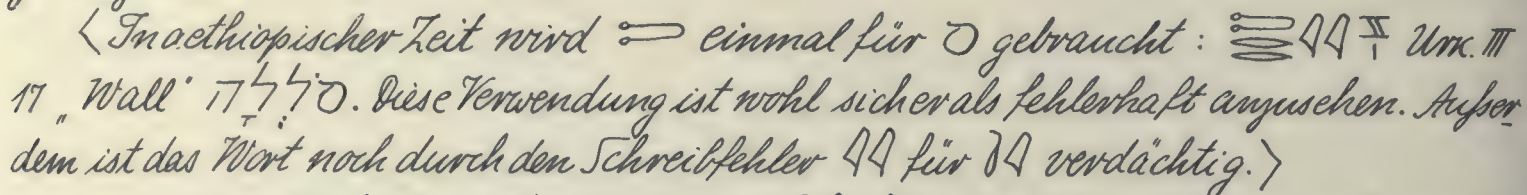 ⟨In aethiopischer Zeit wird 𓍿 einmal für ס gebraucht : 𓇋𓇋 Urk. III
17 „Wall“ סֹלְלָה. Diese Verwendung ist wohl sicher als fehlerhaft anzusehen. Außer-
dem ist das Wort noch durch den Schreibfehler 𓇋𓇋 für verdächtig.⟩